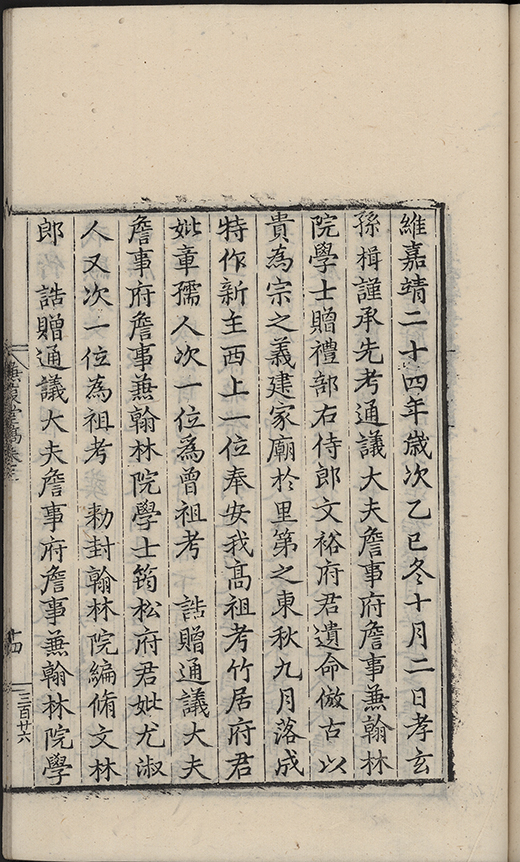 維嘉靖二十四年歲次乙巳冬十月二日孝玄
孫楫謹承先考通議大夫詹事府詹事兼翰林
院學士贈禮部右侍郎文裕府君遺命倣古以
貴為宗之義建家廟於里第之東秋九月落成
特作新主西上一位奉安我髙祖考竹居府君
妣章孺人次一位為曾祖考 誥贈通議大夫
詹事府詹事兼翰林院學士筠松府君妣尤淑
人又次一位為祖考 勑封翰林院編脩文林
郎 誥贈通議大夫詹事府詹事兼翰林院學
十四
三百廿六